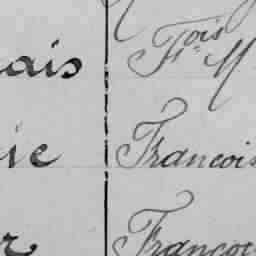 ais Fois M
ie Francois
r Francois